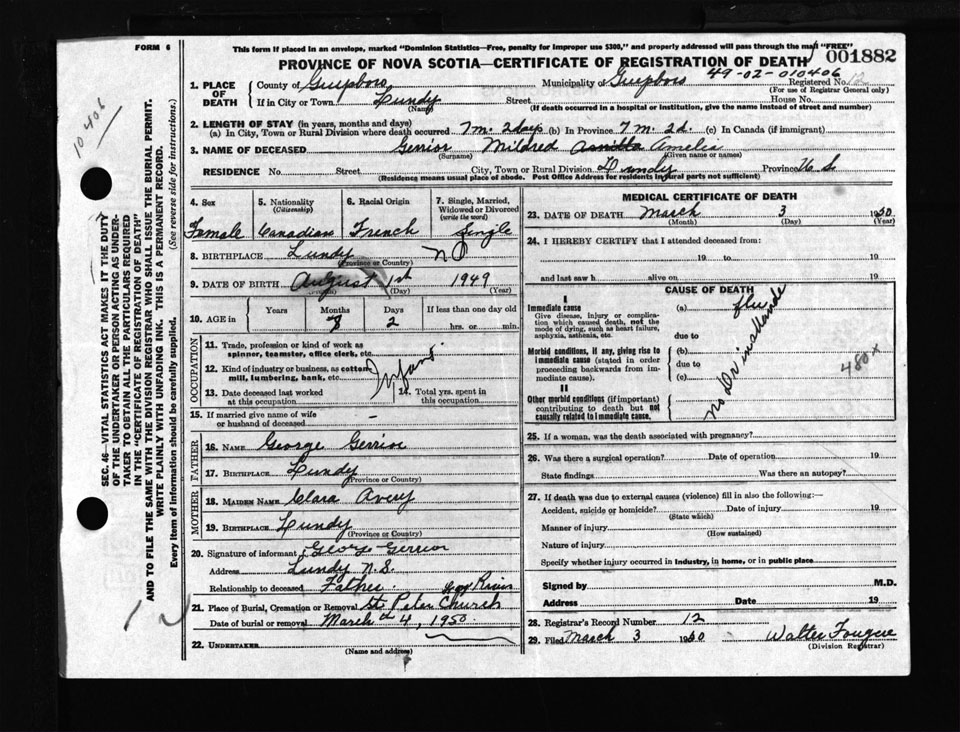 FORM 6
This form if placed in an envelope, marked "Dominion Statistics—Free, penalty for improper use $300," and properly addressed will pass through the mail "FREE"
PROVINCE OF NOVA SCOTIA—CERTIFICATE OF REGISTRATION OF DEATH
001882
49-02-010406
10406
SEC. 46—VITAL STATISTICS ACT MAKES IT THE DUTY
OF THE UNDERTAKER OR PERSON ACTING AS UNDER-
TAKER TO OBTAIN ALL THE PARTICULARS REQUIRED
IN THE "CERTIFICATE OF REGISTRATION OF DEATH"
AND TO FILE THE SAME WITH THE DIVISION REGISTRAR WHO SHALL ISSUE THE BURIAL PERMIT.
WRITE PLAINLY WITH UNFADING INK. THIS IS A PERMANENT RECORD.
Every item of information should be carefully supplied. (See reverse side for instructions.)
1. PLACE OF DEATH
County of Guysboro Municipality of Guysboro Registered No. 12
(For use of Registrar General only)
If in City or Town Lundy Street House No.
(Name) (If death occurred in a hospital or institution, give the name instead of street and number)
2. LENGTH OF STAY (in years, months and days)
(a) In City, Town or Rural Division where death occurred 7 m. 2 days (b) In Province 7 m. 2 d. (c) In Canada (if immigrant)
3. NAME OF DECEASED Gerrior Mildred Amelia
(Surname) (Given name or names)
RESIDENCE No. Street City, Town or Rural Division Lundy Province N S
(Residence means usual place of abode. Post Office Address for residents in rural parts not sufficient)
4. Sex
Female
5. Nationality
(Citizenship)
Canadian
6. Racial Origin
French
7. Single, Married, Widowed or Divorced
(write the word)
Single
8. BIRTHPLACE Lundy N S
(Province or Country)
9. DATE OF BIRTH August 1st 1949
(Day) (Year)
10. AGE in
Years Months Days If less than one day old
2
hrs. or min.
OCCUPATION
11. Trade, profession or kind of work as
spinner, teamster, office clerk, etc.
12. Kind of industry or business, as cotton
mill, lumbering, bank, etc.
Infant
13. Date deceased last worked
at this occupation
14. Total yrs. spent in
this occupation
15. If married give name of wife
or husband of deceased –
FATHER
16. NAME George Gerrior
17. BIRTHPLACE Lundy
(Province or Country)
MOTHER
18. MAIDEN NAME Clara Avery
19. BIRTHPLACE Lundy
(Province or Country)
20. Signature of informant George Gerrior
Address Lundy N.S.
Relationship to deceased Father.
River
21. Place of Burial, Cremation or Removal St Peter Church
Date of burial or removal March 4, 1950.
22. UNDERTAKER
(Name and address)
MEDICAL CERTIFICATE OF DEATH
23. DATE OF DEATH March 3 1950
(Month) (Day) (Year)
24. I HEREBY CERTIFY that I attended deceased from:
19 to 19
and last saw h alive on 19
CAUSE OF DEATH
I
Immediate cause
Give disease, injury or complica-
tion which caused death, not the
mode of dying, such as heart failure,
asphyxia, asthenia, etc.
(a) flu
due to
Morbid conditions, if any, giving rise to
immediate cause (stated in order
proceeding backwards from im-
mediate cause).
(b)
due to
(c)
no Dr in attende
480 x
II
Other morbid conditions (if important)
contributing to death but not
causally related to immediate cause.
25. If a woman, was the death associated with pregnancy?
26. Was there a surgical operation? Date of operation 19
State findings Was there an autopsy?
27. If death was due to external causes (violence) fill in also the following:—
Accident, suicide or homicide? Date of injury 19
(State which)
Manner of injury
(How sustained)
Nature of injury
Specify whether injury occurred in Industry, in home, or in public place
Signed by M.D.
Address Date 19
28. Registrar's Record Number 12
29. Filed March 3 1950 Walter Fougere
(Division Registrar)